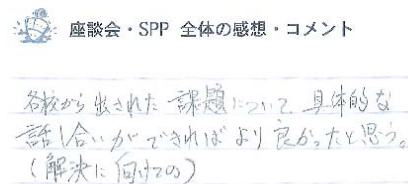 座談会・SPP 全体の感想・コメント
各校から出された課題について、具体的な
話し合いができればより良かったと思う。
(解決に向けての)